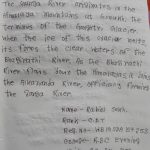 The Ganga River originates in the
Himalaya Mountains at Gomukh, the
terminus of the Gangotri Glacier.
When the ice of this glacier melts
its forms the clear waters of the
Bhagirathi River. As the Bhagirathi
River flows down the Himalayas it joins
the Alaknanda River, officially forming
the Ganga River.
Name - Rahul
Roll No -